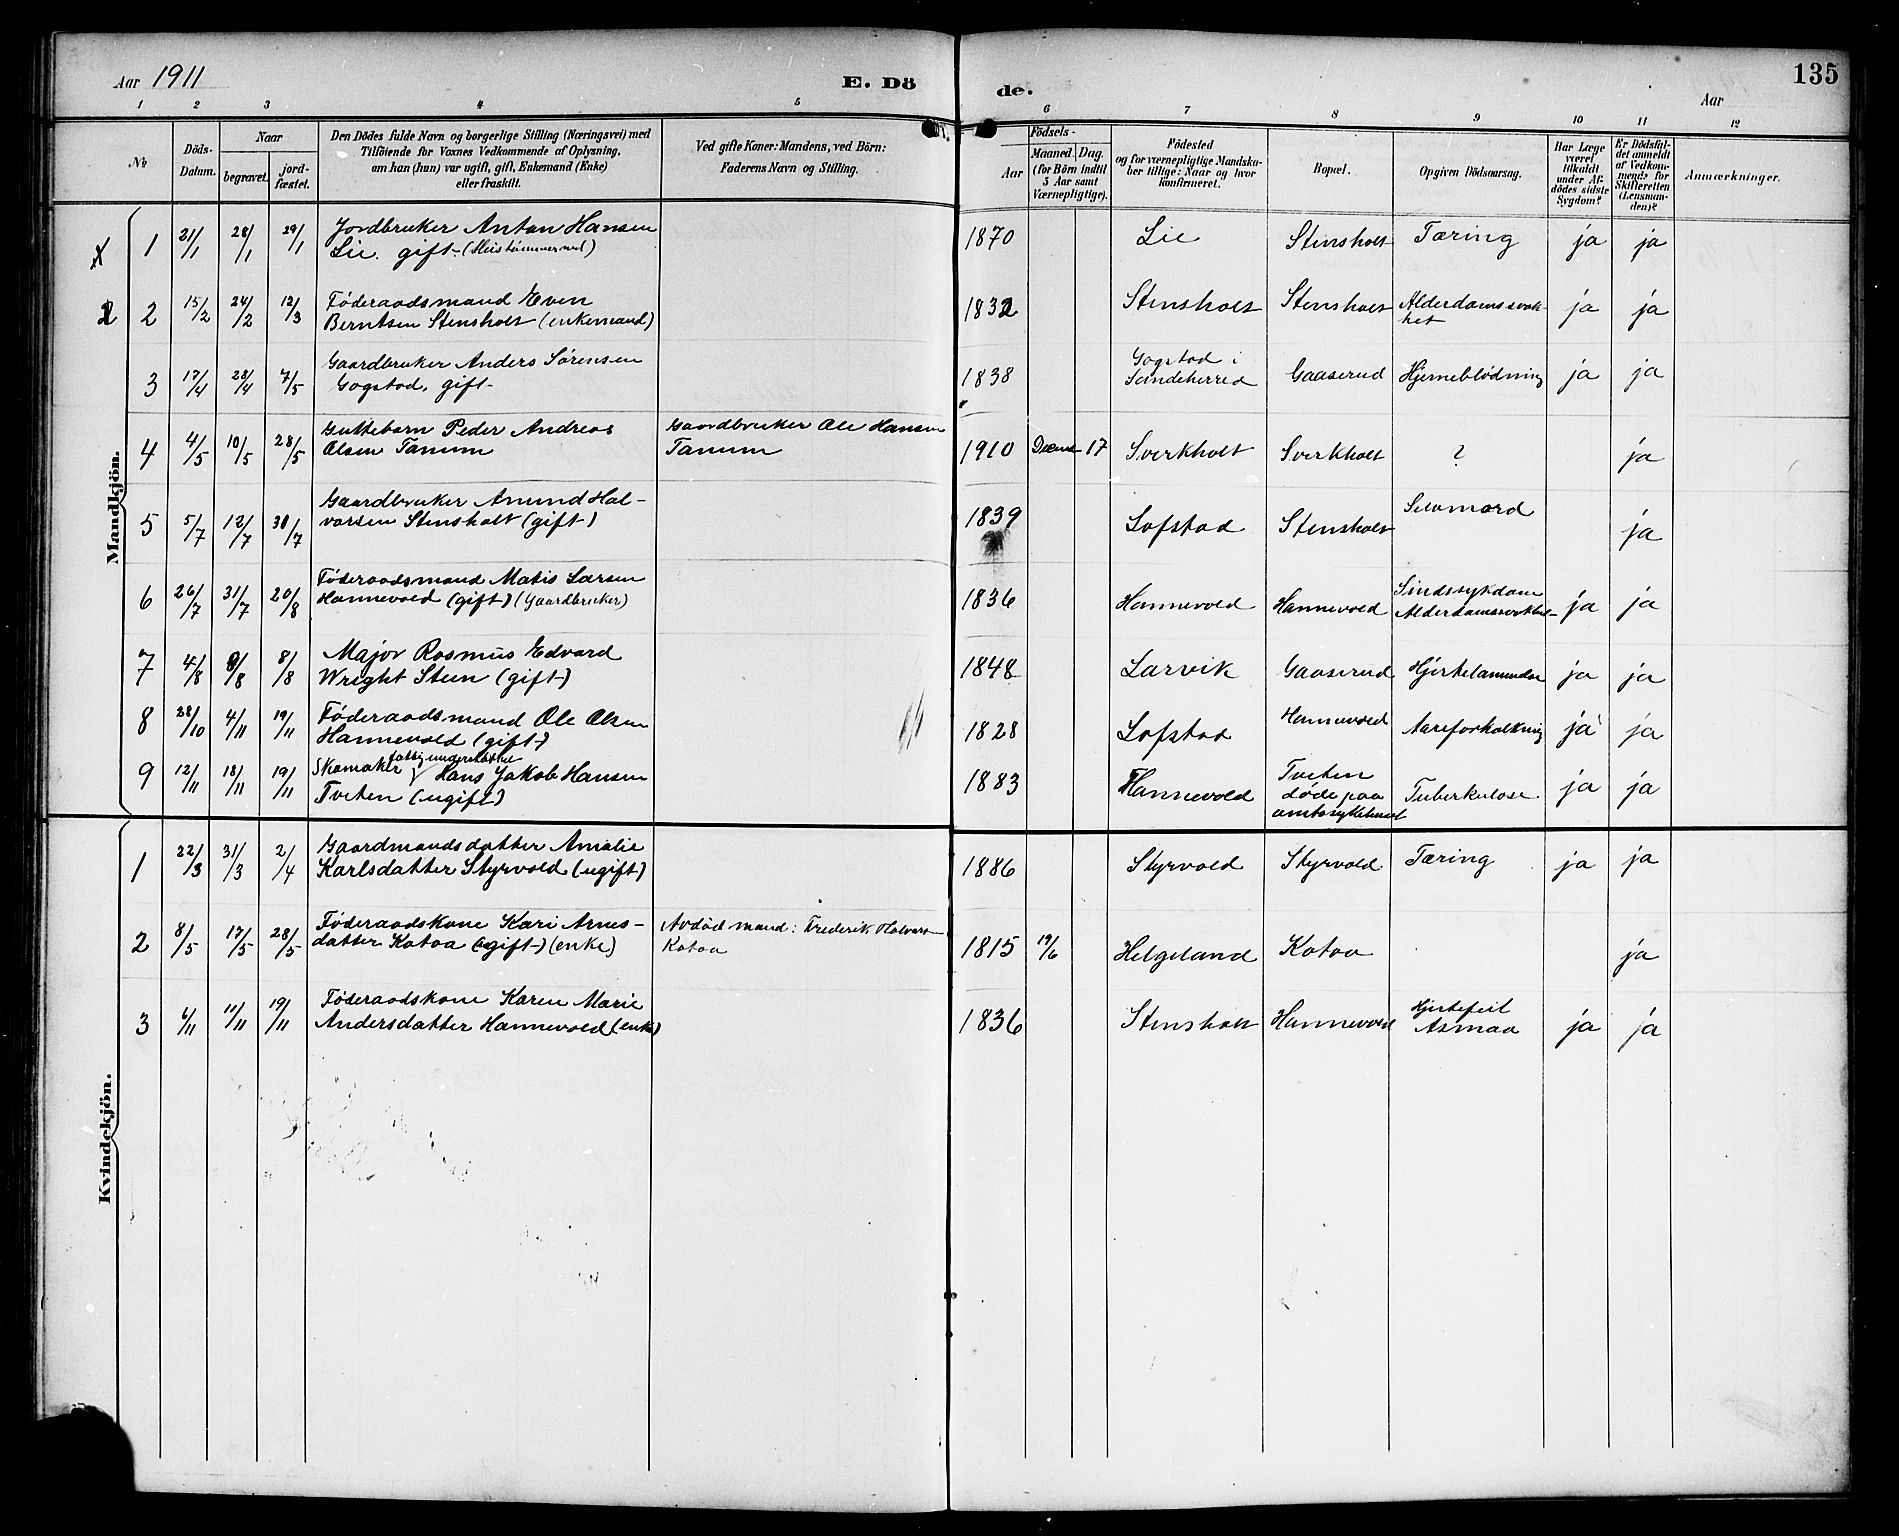 Aar 1911
E. Dö
de.
Aar
135
1 2 3 4 5 6 7 8 9 10 11 12
No
Döds-Datum.
Naar
begravet.
jord-fæstet.
Den Dödes fulde Navn og borgerlige Stilling (Næringsvei) med
Tilföiende for Voxnes Vedkommende af Oplysning,
om han (hun) var ugift, gift, Enkemand (Enke)
eller fraskilt.
Ved gifte Koner: Mandens, ved Börn:
Faderens Navn og Stilling.
Födsels-
Aar
Maaned. Dag.
(for Börn indtil
5 Aar samt
Værnepligtige).
Födested
og for værnepligtige Mandsku-
ber tillige: Naar og hvor
konfirmeret.
Bopæl.
Opgiven Dödsaarsag.
Har Læge
været
tilkaldt
under Af-
dödes sidste
Sygdom?
Er Dödsfal-
det anmeldt
af Vedkom-
mende for
Skifteretten
(Lensman-
den)?
Anmærkninger.
Mandkjön.
1 21/1 28/1 29/1 Jordbruker Anton Hansen
Lie. gift. 1870 Lie Stensholt Tæring ja ja
2 15/2 24/2 12/3 Føderaadsmand Even
Berntsen Stensholt (enkemand) 1832 Stensholt Stensholt Alderdomssvak-
het ja ja
3 17/4 28/4 7/5 Gaardbruker Anders Sørensen
Gogstad, gift 1838 Gogstad i
Sandeherred Gaaserud Hjerneblødning ja ja
4 4/5 10/5 28/5 Guttebarn Peder Andreas
Olsen Tanum
Gaardbruker Ole Hansen
Tanum
1910 17 Sverkholt Sverkholt ? ja
5 5/7 12/7 30/7 Gaardbruker Anund Hal-
vorsen Stensholt (gift) 1839 Lofstad Stensholt Selvmord ja
6 26/7 31/7 20/8 Føderaadsmand Matis Larsen
Hannevold (gift) (Gaardbruker) 1836 Hannevold Hannevold Sindssykdom
ja ja
7 4/8 8/8 8/8 Major Rasmus Edvard
Wright Steen (gift) 1848 Larvik Gaaserud ja ja
8 28/10 4/11 19/11 Føderaadsmand Ole Olsen
Hannevold (gift) 1828 Lofstad Hannevold Aareforkalkning ja ja
9 12/11 18/11 19/11 Skomaker Hans Jakob Hansen
Tveten (ugift) 1883 Hannevold Tveten
døde paa
amtssykehuset Tuberkulose ja ja
Kvindekjön.
1 22/3 31/3 2/4 Gaardmandsdatter Amalie
Karlsdatter Styrvold (ugift) 1886 Styrvold Styrvold Tæring ja ja
2 8/5 17/5 28/5 Føderaadskone Kari Arnes-
datter Kotoa (gift) (enke)
Avdød mand: Frederik Halvors
Kotoa
1815 19/6 Helgeland Kotoa ja
3 6/11 11/11 19/11 Føderaadskone Karen Marie
Andersdatter Hannevold (enke) 1836 Stensholt Hannevold Hjertefeil
Asmaa ja ja